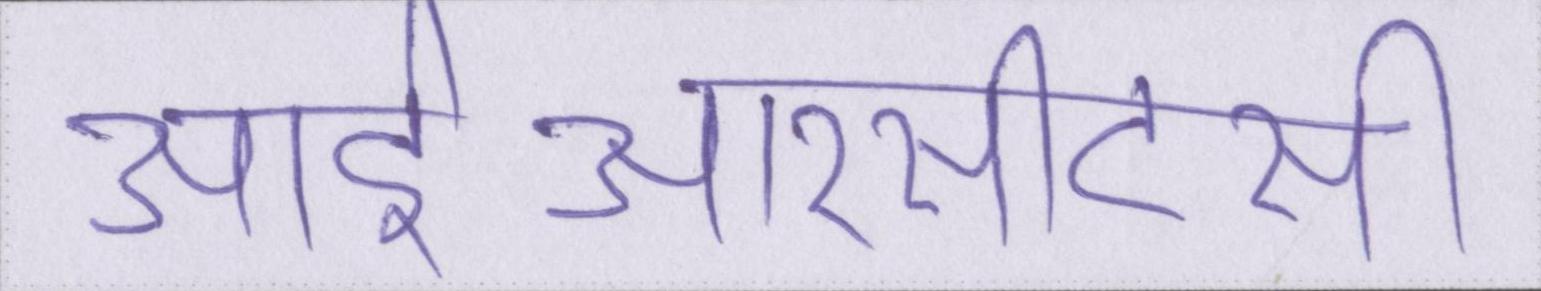 आईआरसीटसी